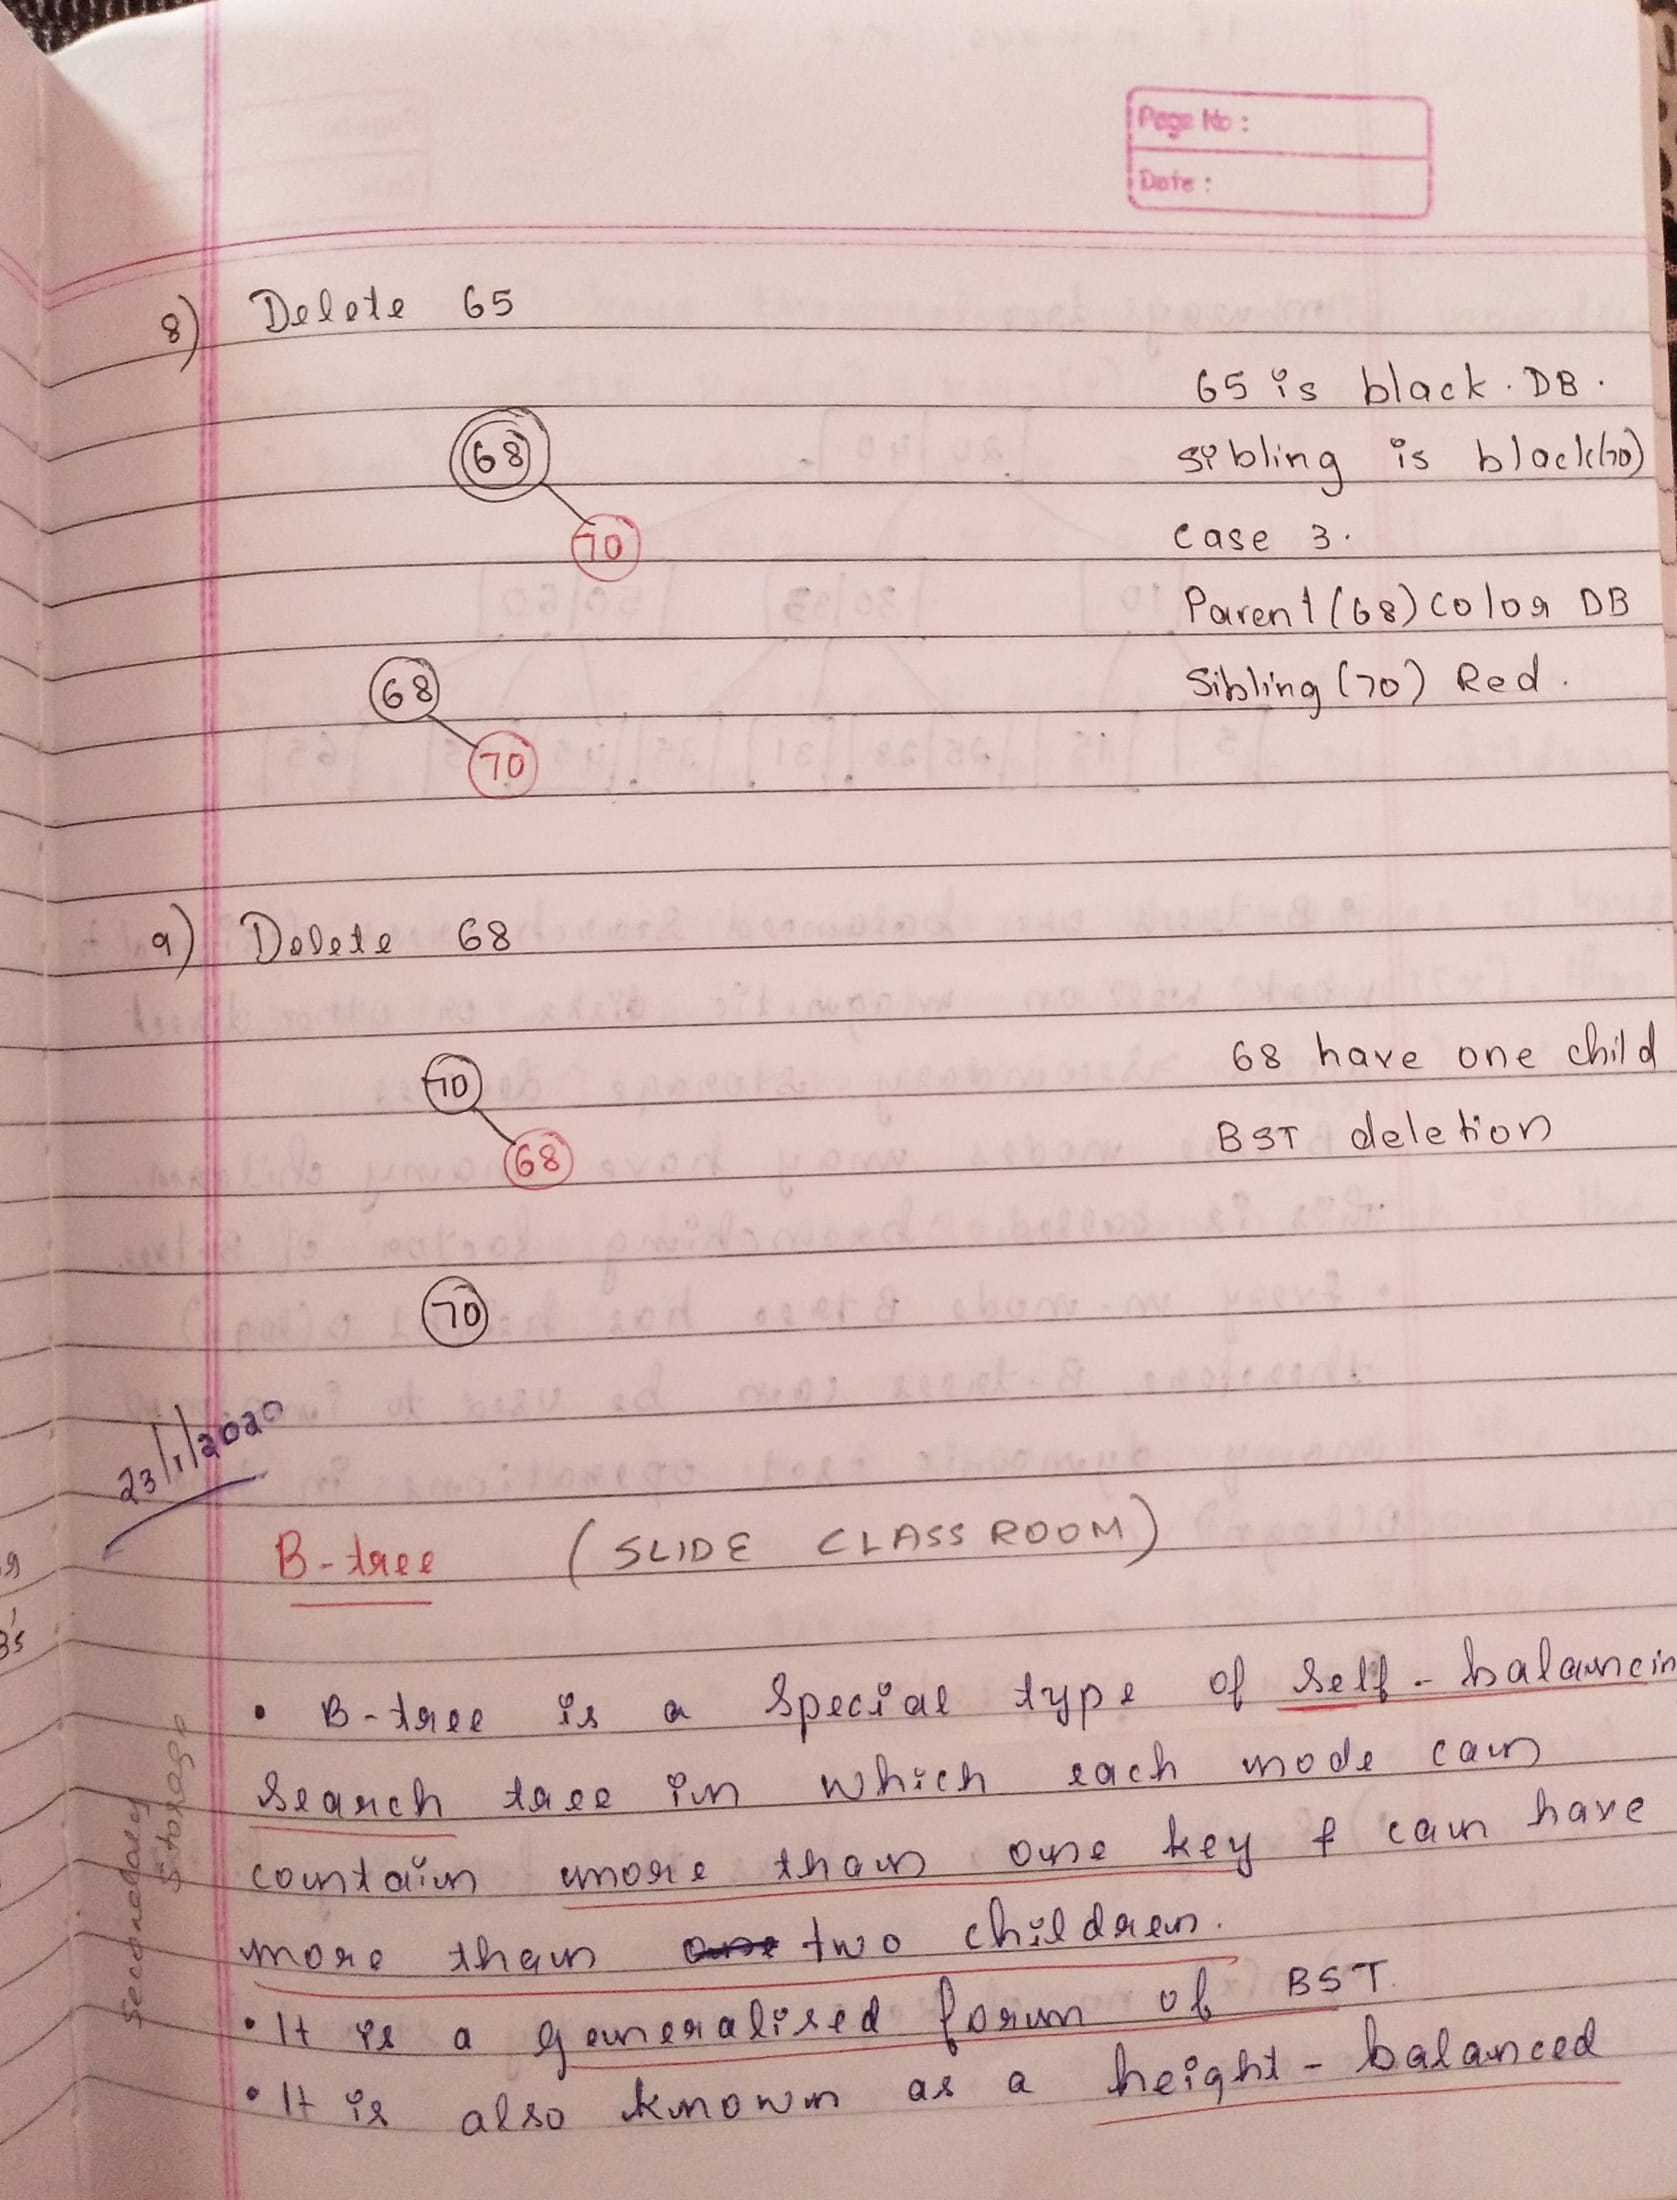 Page No :
Date :
8) Delete 65
65 is black. DB.
68
sibling is black(70)
70
case 3.
Parent(68) color DB
68
Sibling (70) Red.
70
9) Delete 68
70
68 have one child
68
BST deletion
70
23/1/2020
B-tree (SLIDE CLASSROOM)
• B-tree is a special type of self-balancin
search tree in which each node can
contain more than one key & can have
more than one two children.
• It is a generalised form of BST.
• It is also known as a height-balanced
Secondary
Storage